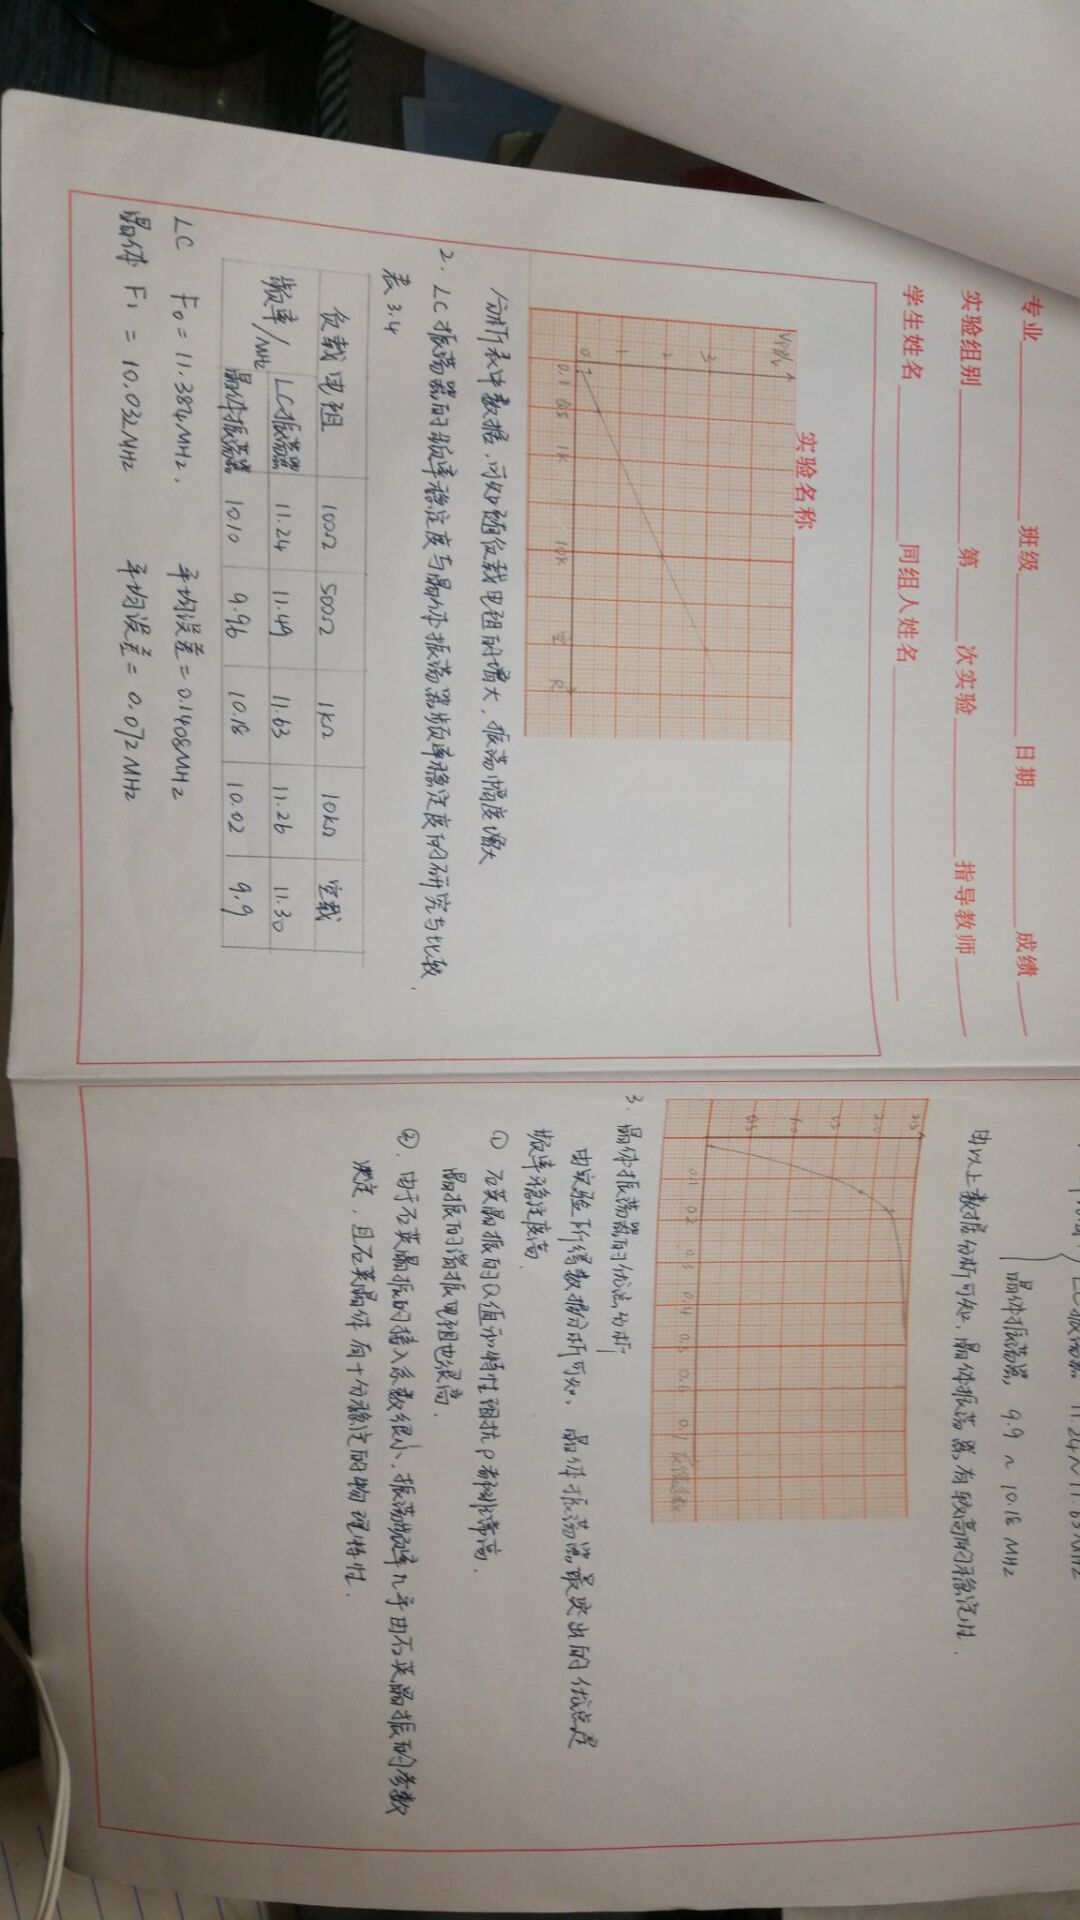 专业 班级 日期 成绩
实验组别 第 次实验 指导教师
学生姓名 同组人姓名
实验名称
0 1 2 3
0.1 0.5 1K 10K R
分析表中数据,可知随负载电阻的增大,振荡幅度增大
2. LC振荡器的频率稳定度与晶体振荡器频率稳定度的研究与比较.
表3.4
负载电阻 100Ω 500Ω 1KΩ 10KΩ 空载
频率/MHz LC振荡器 11.24 11.49 11.63 11.26 11.30
晶体振荡器 10.10 9.96 10.18 10.02 9.9
LC F₀ = 11.384MHz, 平均误差 = 0.1408MHz
晶体 F₁ = 10.032MHz 平均误差 = 0.072MHz
晶体振荡器 9.9 ~ 10.18 MHz
由以上数据分析可知,晶体振荡器有较高的稳定性.
0.5 1.0 1.5 2.0 2.5
0.1 0.2 0.3 0.4 0.5 0.6 0.7
3. 晶体振荡器的优点分析
由实验所得数据分析可知,晶体振荡器最突出的优点是
频率稳定度高.
① 石英晶振的Q值和特性阻抗ρ都非常高.
晶振的谐振电阻也很高.
②. 由于石英晶振的接入系数很小,振荡频率几乎由石英晶振的参数
决定,且石英晶体有十分稳定的物理特性.